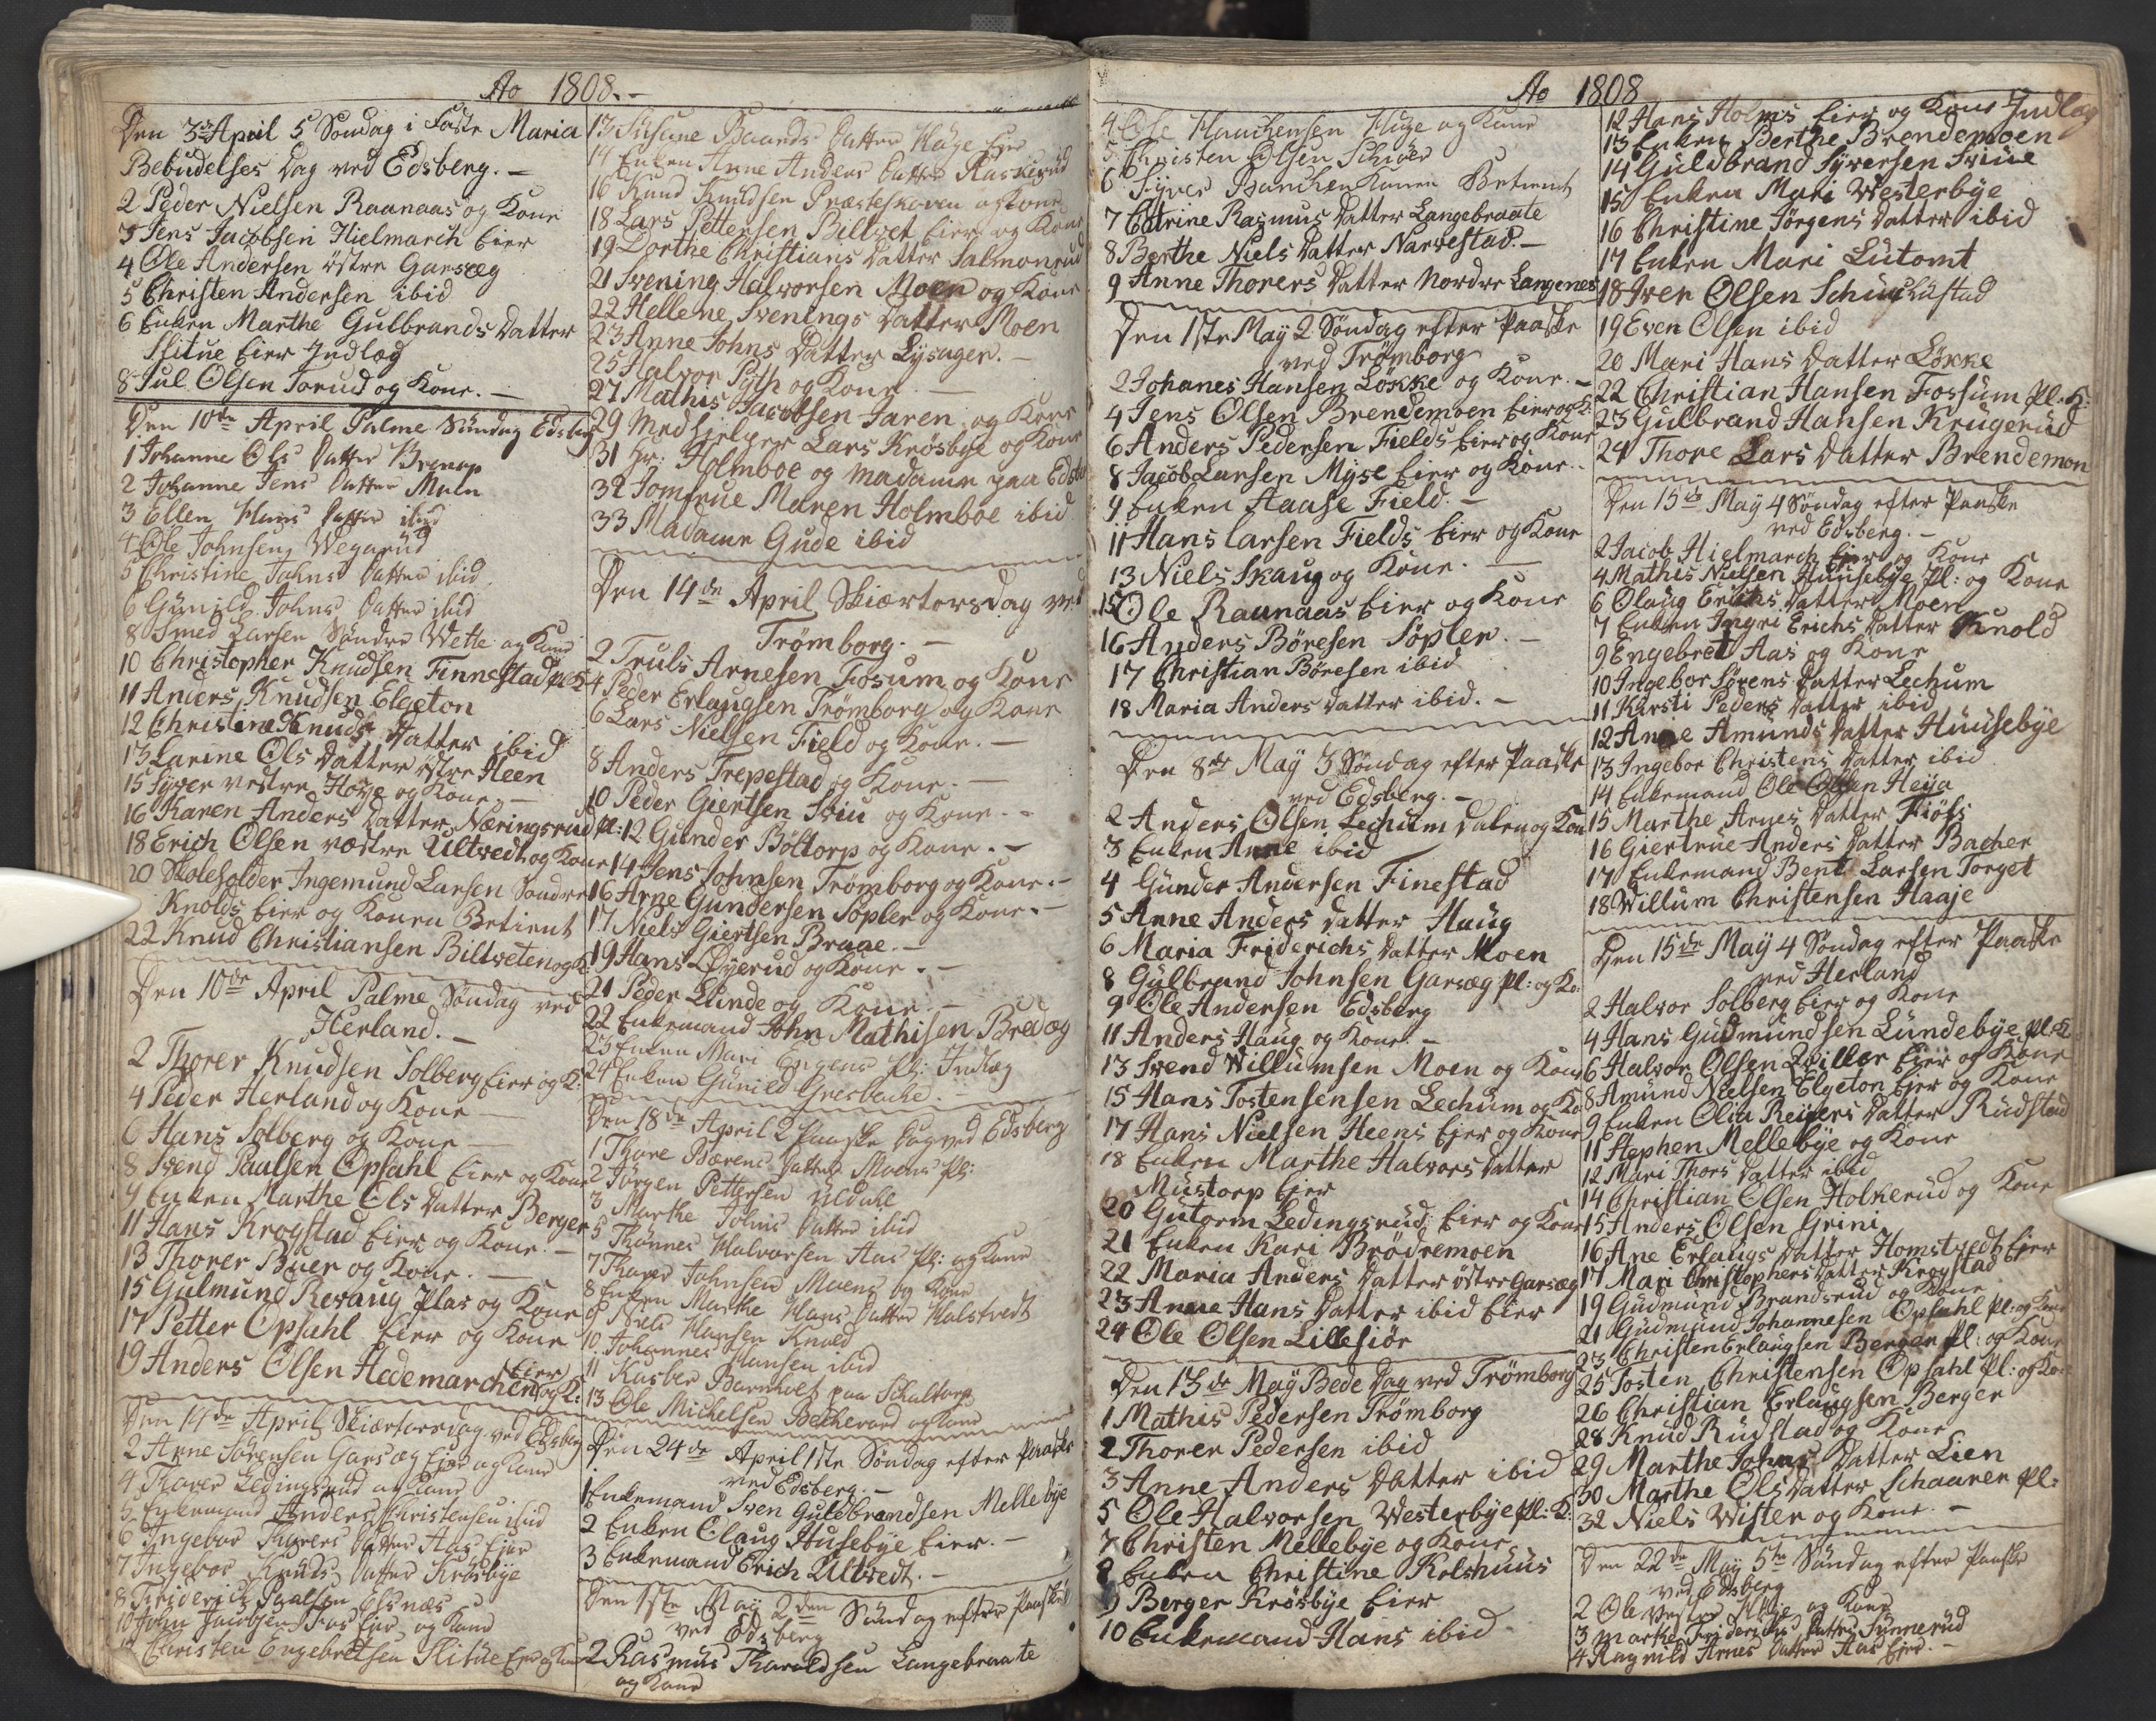 Ao 1808.-
Den 3die April 5 Søndag i Faste Maria
Bebudelses Dag ved Edsberg.-
2 Peder Nielsen Raanaas og Kone
3 Jens Jacobsen Hielmarch Eier
4 Ole Andersen østre Garsæg
5 Christen Andersen ibid
6 Enken Marthe Gulbrands Datter
Slitue Eier Indlæg
8 Jul Olsen Torud og Kone.-
Den 10de April Palme Søndag Edsberg
1 Johanne Ols Datter
2 Johanne Jens Datter Moen
3 Ellen Hans Datter ibid
4 Ole Johnsen Wegarud
5 Christine Johns Datter ibid
6 Gunild Johns Datter ibid
8 Smed Larsen Søndre Wette og Kone
10 Christopher Knudsen Finnestad pl: K:
11 Anders Knudsen Elgeton
12 Christine Knuds Datter ibid
13 Larine Ols Datter østre Heen
15 Syver vestre Høye og Kone.-
16 Karen Anders Datter Næringsrud Pl:
18 Erich Olsen væstre Ultvedt og Kone
20 Skoleholder Ingemund Larsen Søndre
Knolds Eier og Konen Betient
22 Knud Christiansen Biltveten og K:
Den 10de April Palme Søndag ved
Herland.-
2 Thorer Knudsen Solberg Eier og K:
4 Peder Herland og Kone
6 Hans Solberg og Kone
8 Svend Paulsen Opsahl Eier og Kone
9 Enken Marthe Ols Datter Berger
11 Hans Krogstad Eier og Kone.-
13 Thorer Buer og Kone.
15 Gulmund Revaug Plas og Kone
17 Petter Opsahl Eier og Kone
19 Anders Olsen Hedemarchen Eier og K:
Den 14de April Skiærtorsdag ved Edsberg
2 Arne Sørensen Garsæg Eier og Kone
4 Thorer Ledingsrud og Kone
5 Enkemand Anders Christensen ibid
6 Ingebor Thorers Datter Aas Eier
7 Ingebor Knuds Datter Krosbye
8 Friderich Paulsen Elsnæs
10 John Jacobsen Fos Eier og Kone
12 Christen Engebretsen Slitue Eier og Kone
13 Susane Baards Datter Høye Eier
14 Enken Anne Anders Datter Raskerud
16 Knud Knudsen Præsteskoven og Kone
18 Lars Pettersen Biltvet Eier og Kone
19 Dorthe Christians Datter Salmonrud
21 Svening Halvorsen Moen og Kone
22 Hellene Svenings Datter Moen
23 Anne Johns Datter Lysager.-
25 Halvor Syth og Kone.-
27 Mathis Jacobsen Jaren og Kone
29 Medhielper Lars Krosbye og Kone
31 Hr: Holmboe og Madame paa Edsberg
32 Jomfrue Maren Holmboe ibid
33 Madame Gude ibid
Den 14de April Skiærtorsdag ved
Trømborg.-
2 Truls Arnesen Fosum og Kone
4 Peder Erlaugsen Trømborg og Kone
6 Lars Nielsen Field og Kone.-
8 Anders Trepestad og Kone.-
10 Peder Giertsen Sviu og Kone.-
12 Gunder Böltorp og Kone.-
14 Jens Johnsen Trømborg og Kone.-
16 Arne Gundersen Sopler og Kone.-
17 Niels Giertsen Braae.-
19 Hans Øyerud og Kone.-
21 Peder Lunde og Kone.-
22 Enkemand John Mathisen Bredæg
23 Enken Mari Engens Pl: Indlæg
24 Enken Gunild Gresbache.-
Den 18de April 2 Paaske Dag ved Edsberg
1 Thore Børens Datter Moens Pl:
2 Jørgen Pettersen Uldahl
3 Marthe Johns Datter ibid
5 Thønnes Halvorsen Aas Pl: og Kone
7 Thorer Johnsen Moens og Kone
8 Enken Marthe Hans Datter Halstvedt
9 Niels Hansen Knold
10 Johannes Hansen ibid
11 Kasber Barnholt paa Skultorp
13 Ole Michelsen Bechevard og Kone
Den 24de April 1ste Søndag efter Paaske
ved Edsberg.-
1 Enkemand Iven Guldbrandsen Mellebye
2 Enken Olaug Husebye Eier.-
3 Enkemand Erich Ultvedt.-
Den 1ste May 2den Søndag efter Paaske
ved Edsberg
2 Rasmus Tharaldsen Langebraate
og Kone
Ao 1808
4 Ole Haachensen Høye og Kone
5 Christen Olsen Schiør
6 Syver Konen Betient
7 Catrine Rasmus Datter Langebraate
8 Berthe Niels Datter Narvestad.-
9 Anne Thorers Datter Nordre Langenes
Den 1ste May 2 Søndag efter Paaske
ved Trømborg
2 Johanes Hansen Løkke og Kone.-
4 Jens Olsen Brendemoen Eier og K:
6 Anders Pedersen Fields Eier og Kone
8 Jacob Larsen Myse Eier og Kone.-
9 Enken Haase Field.-
11 Hans Larsen Fields Eier og Kone
13 Niels Skaug og Kone.-
15 Ole Raunaas Eier og Kone
16 Anders Böresen Söpler.-
17 Christian Böresen ibid
18 Maria Anders Datter ibid.-
Den 8de May 3 Søndag efter Paaske
ved Edsberg.-
2 Anders Olsen Lechum Dalen og Kone
3 Enken Anne ibid
4 Gunder Andersen Finestad
5 Anne Anders Datter Haug
6 Maria Friderichs Datter Moen
8 Gulbrand Johnsen Garsæg Pl: og Ko:
9 Ole Andersen Edsberg
11 Anders Haug og Kone.-
13 Svend Willumsen Moen og Kone
15 Hans Tostensensen Lechum og Ko
17 Hans Nielsen Heens Eier og Kone
18 Enken Marthe Halvors Datter
Mustorp Eier
20 Gutorm Ledingsrud Eier og Kone
21 Enken Kari Brødremoen
22 Maria Anders Datter østre Garsæg
23 Anne Hans Datter ibid Eier
24 Ole Olsen Lillesiör
Den 13de May Bede Dag ved Trømborg
1 Mathis Pedersen Trömborg
2 Thorer Pedersen ibid
3 Anne Anders Datter ibid
5 Ole Halvorsen Westerbye Pl: K:
7 Christen Mellebye og Kone
8 Enken Christine Kolshuus
9 Berger Krøsbye Eier
10 Enkemand Hans ibid
12 Hans Holms Eier og Kone Indlæg
13 Enken Berthe Brendemoen
14 Guldbrand Syversen Sviue
15 Enken Mari Westerbye
16 Christine Jörgens Datter ibid
17 Enken Mari Lutomt
18 Iver Olsen
19 Even Olsen ibid
20 Mari Hans Datter Løkke
22 Christian Hansen Fossum Pl. K:
23 Gulbrand Hansen Krugerud
24 Thore Lars Datter Brendemon
Den 15de May 4 Søndag efter Paaske
ved Edsberg.-
2 Jacob Hielmarch Eier og Kone
4 Mathis Nielsen Huusebye Pl: og Kone
6 Olaug Erichs Datter Moen
7 Enken Ingri Erichs Datter Knold
9 Engebret Aas og Kone
10 Ingebor Sörens Datter Lechum
11 Karsti Peders Datter ibid
12 Anne Amunds Datter Huusebye
13 Ingebor Christens Datter ibid
14 Enkemand Ole Olsen Heya
15 Marthe Arnes Datter Fiös
16 Giertrue Anders Datter Bacher
17 Enkemand Bent Larsen Torget
18 Willum Christensen Haaje
Den 15de May 4 Søndag efter Paaske
ved Herland
2 Halvor Solberg Eier og Kone
4 Hans Gudmundsen Lundebye Pl. K
6 Halvor Olsen Qviller Eier og Kone
8 Amund Nielsen Elgeton Eier og Kone
9 Enken Olia Reiers Datter Rudstad
11 Stephen Mellebye og Kone
12 Mari Thors Datter ibid
14 Christian Olsen Holkerud og Kone
15 Anders Olsen Grini
16 Ane Erlaugs Datter Homstvedt Eier
17 Mari Christophers Datter Krogstad Eier
19 Gudmund Brandsrud og Kone
21 Gudmund Johannesen Opsahl Pl: og Kone
23 Christen Erlaugsen Berger Pl: og Kone
25 Tosten Christensen Opsahl Pl: og Ko
26 Christian Erlaugsen Berger
28 Knud Rudstad og Kone
29 Marthe Johns Datter Lien
30 Marthe Ols Datter Schaaren Pl:
32 Niels Wister og Kone.-
Den 22de May 5te Søndag efter Paaske
ved Edsberg
2 Ole Vestre Høie og Kone
3 Marthe Friderichs Datter Synnerud
4 Ragnild Arnes Datter Aas Eier.-